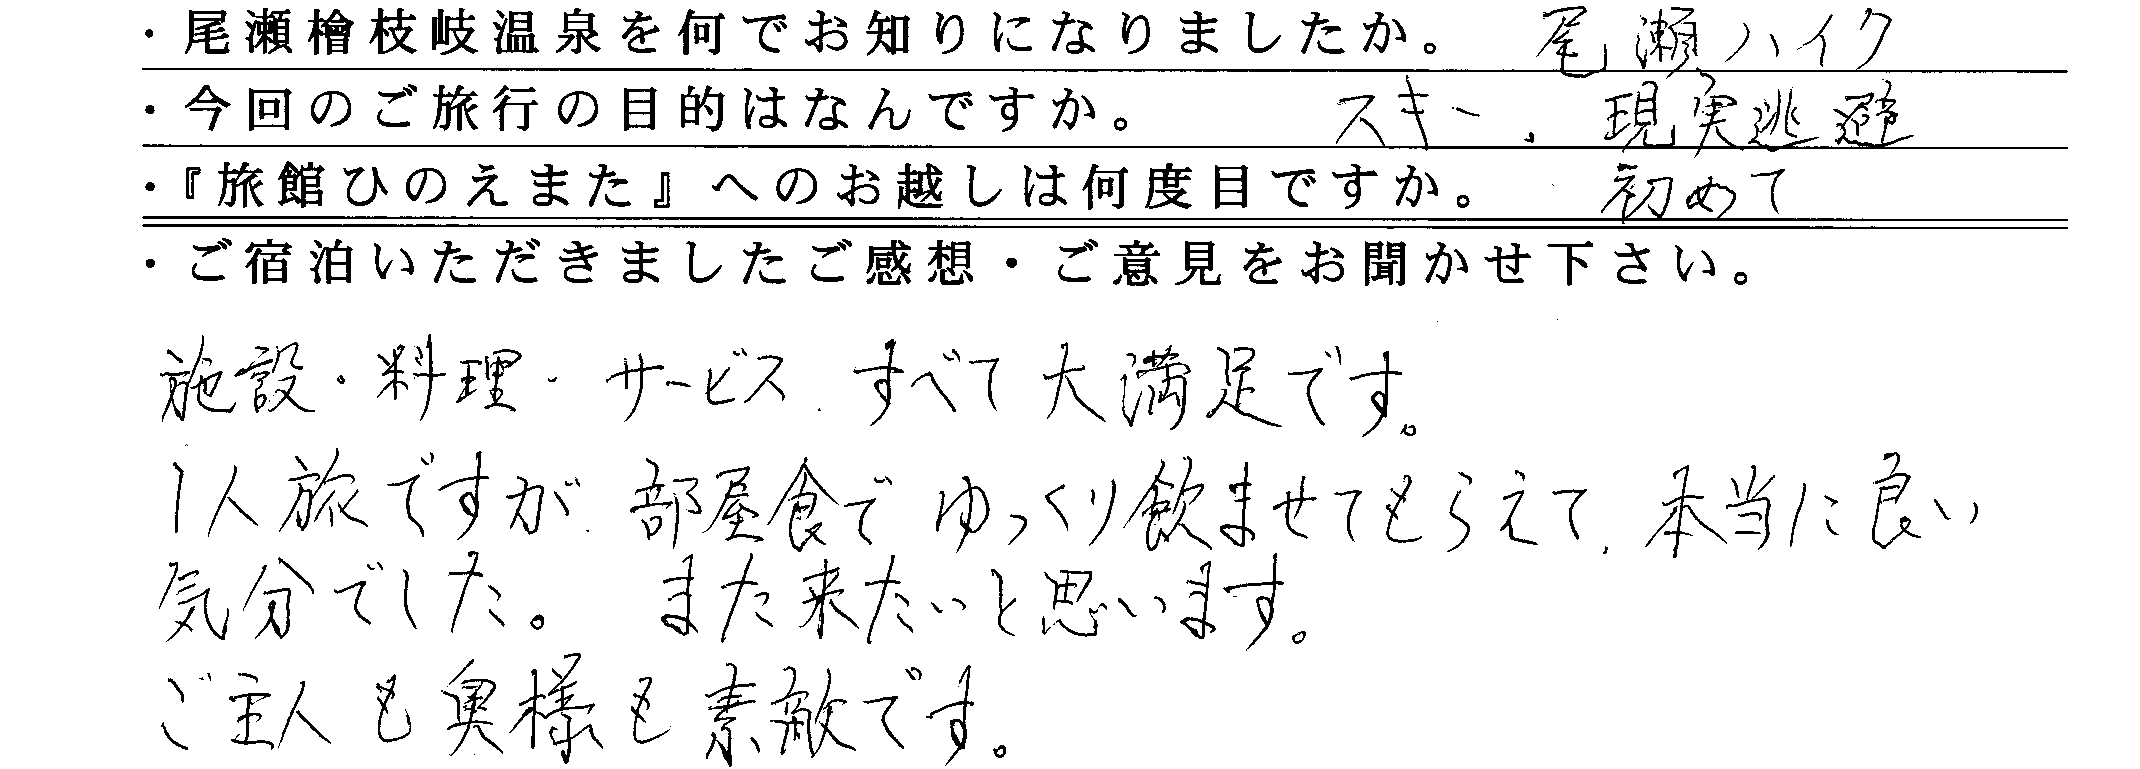 ・尾瀬檜枝岐温泉を何でお知りになりましたか。 尾瀬ハイク
・今回のご旅行の目的はなんですか。 スキー、現実逃避
・『旅館ひのえまた』へのお越しは何度目ですか。 初めて
・ご宿泊いただきましたご感想・ご意見をお聞かせ下さい。
施設・料理・サービス すべて大満足です。
1人旅ですが、部屋食でゆっくり飲ませてもらえて、本当に良い
気分でした。 また来たいと思います。
ご主人も奥様も素敵です。